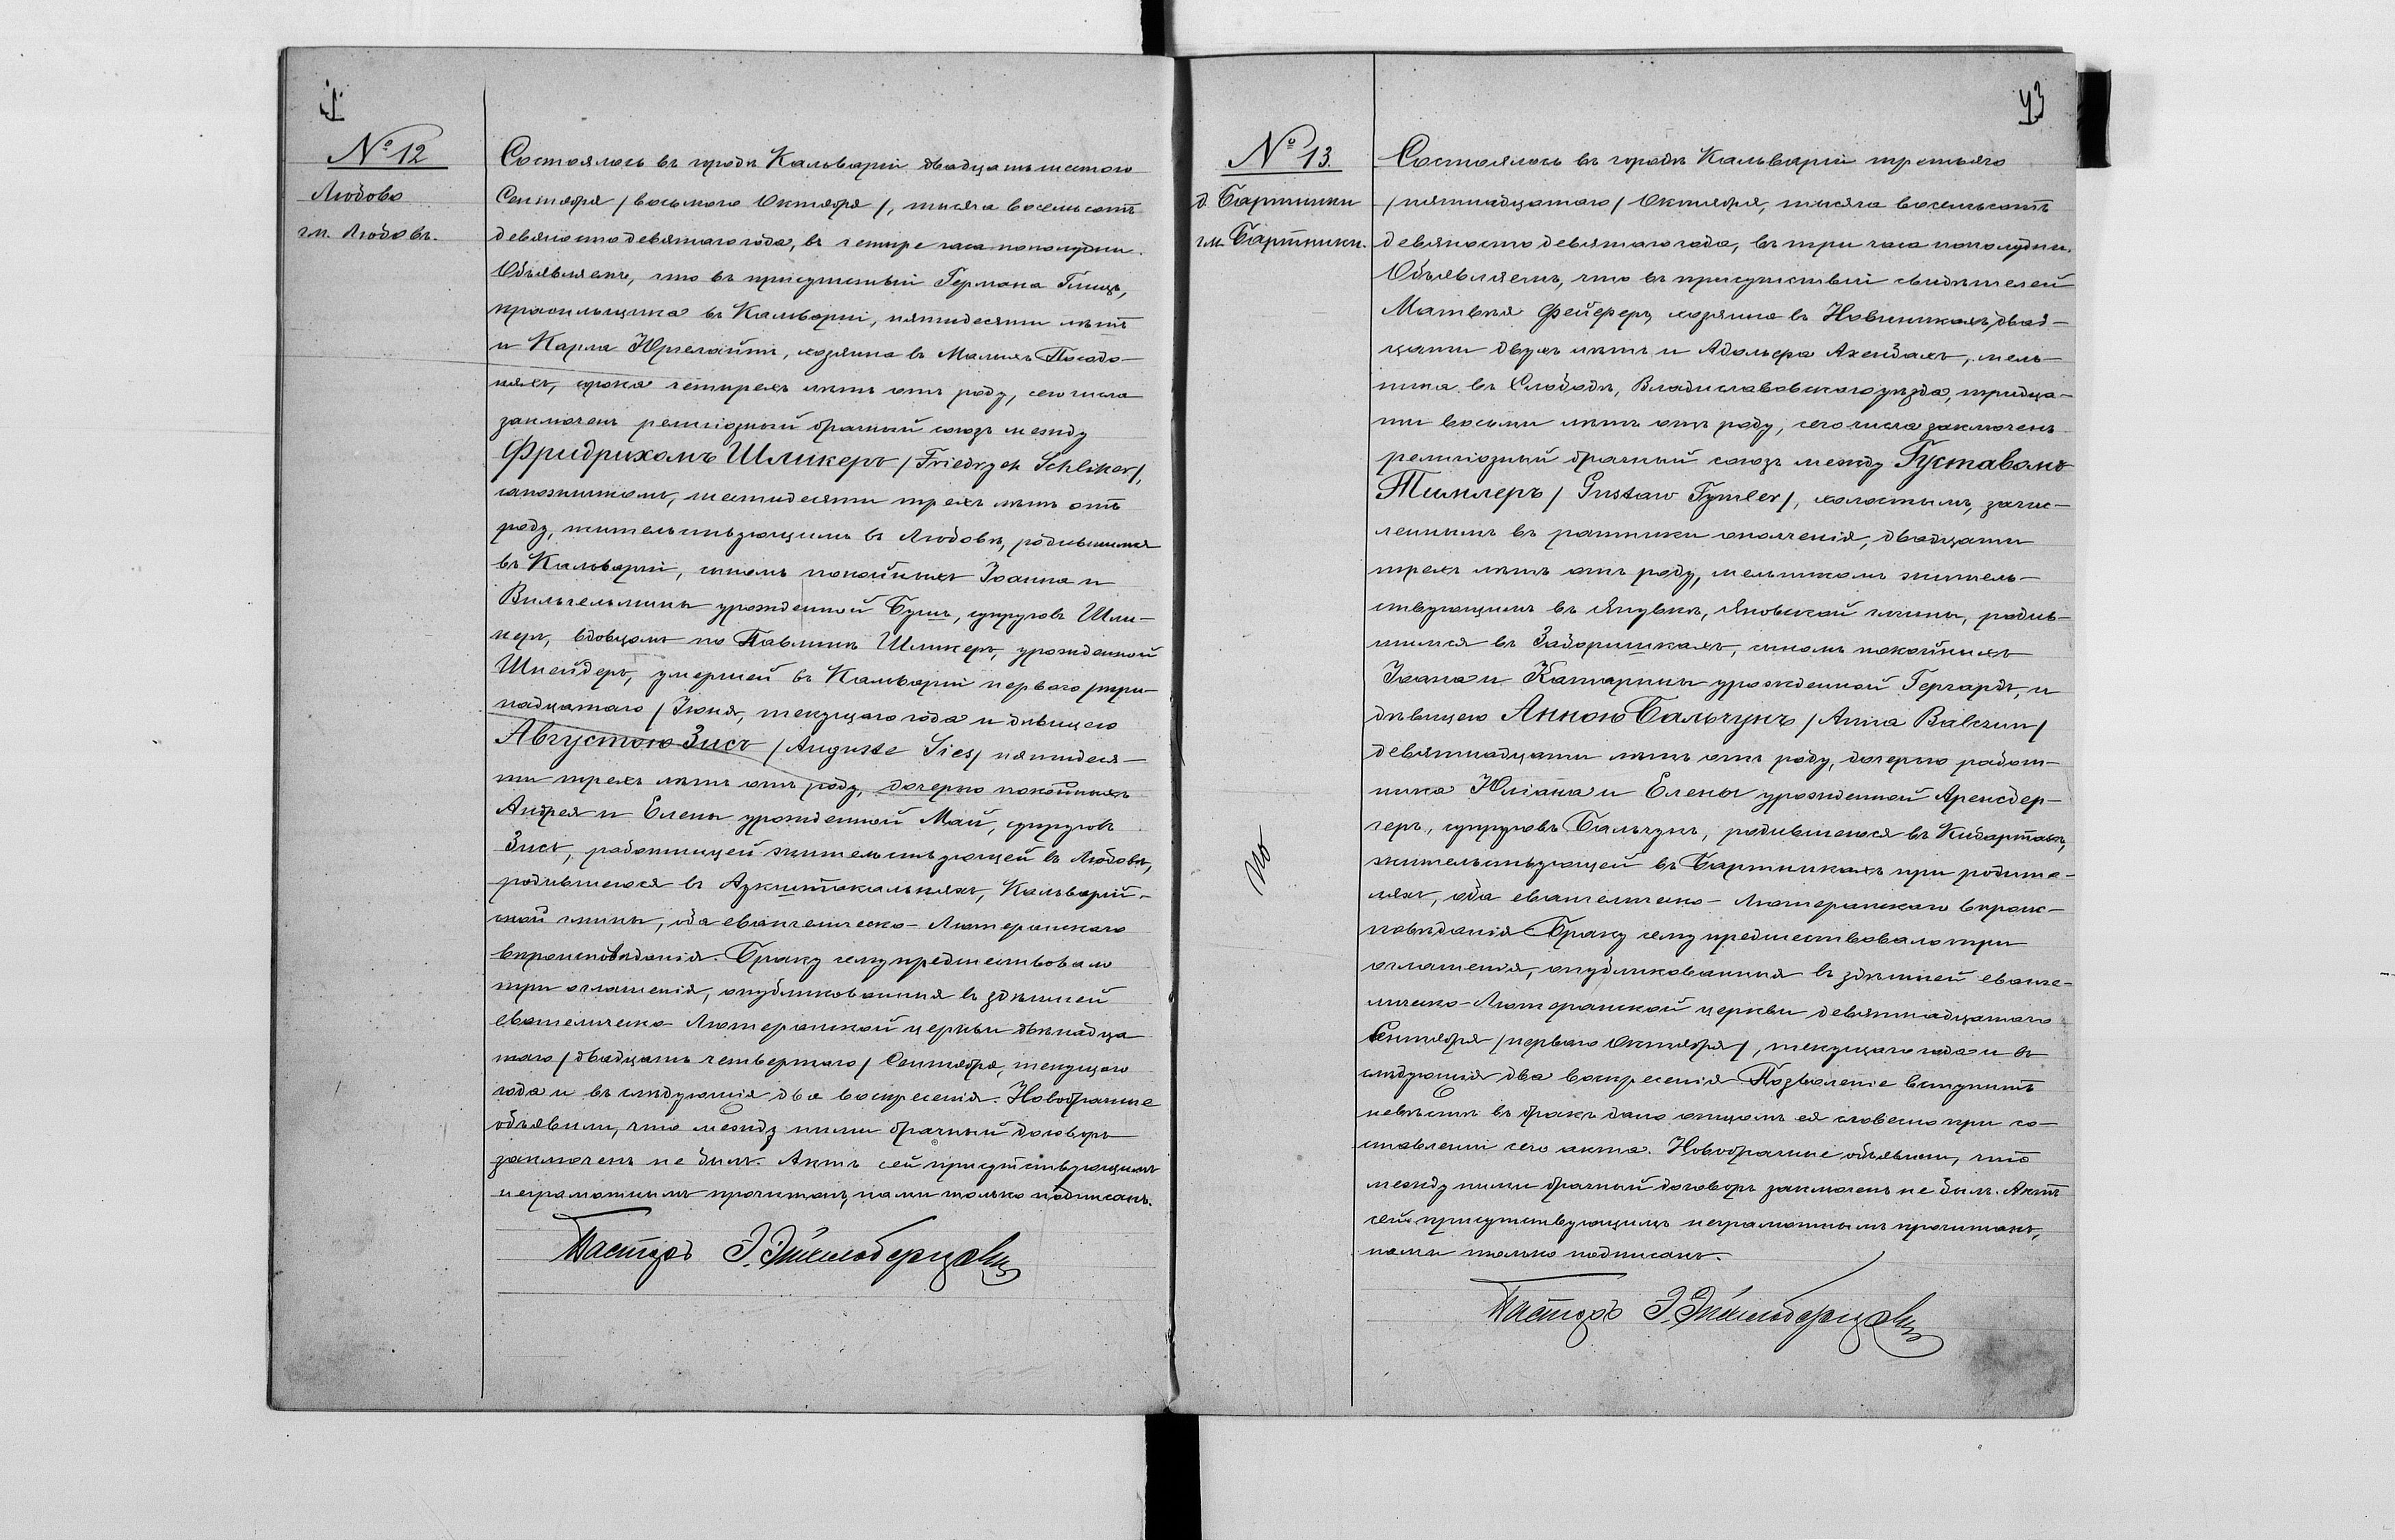 № 12
Любово
гм. Любовъ.
Состоялось въ городѣ Кальваріи двадцать шестого
Сентября /восьмого Октября/, тысяча восемьсотъ
девяносто девятаго года, въ четыре часа пополудни.
Объявляемъ, что въ присутствіи Германа Глицъ,
красильщика въ Кальваріи, пятидесяти лѣтъ
и Карла Юргелайтъ, хозяина въ Малыхъ
сорока четырехъ лѣтъ отъ роду, сего числа
заключенъ религіозный брачный союзъ между
Фридрихомъ Шликеръ /Friedrych Schliker/,
сапожникомъ, шестидесяти трехъ лѣтъ отъ
роду, жительствующимъ въ Любовѣ, родившимся
въ Кальваріи, сыномъ покойныхъ Іоанна и
Вильгельмины урожденной Бушъ, супруговъ Шли-
керъ, вдовцомъ по Павлинѣ Шликеръ, урожденной
Шнейдеръ, умершей въ Кальваріи перваго /три-
надцатаго/ Іюня, текущаго года и дѣвицею
Августою Зисъ /Auguste Sies/ пятидеся-
ти трехъ лѣтъ отъ роду, дочерью покойныхъ
Андрея и Елены урожденной Май, супруговъ
Зисъ, работницей жительствующей въ Любовѣ,
родившеюся въ Кальварій-
ской гмины, оба евангелическо-Лютеранскаго
вѣроисповѣданія. Браку сему предшествовало
три оглашенія, опубликованныя въ здѣшней
евангелическо-Лютеранской церкви двѣнадца
таго /двадцать четвертаго/ Сентября, текущаго
года и въ слѣдующія два воскресенія. Новобрачные
объявили, что между ними брачный договоръ
заключенъ не былъ. Актъ сей присутствующимъ
неграмотнымъ прочитанъ, нами только подписанъ.
Пасторъ
43
№ 13.
д. Бартники
гм. Бартники.
Состоялось въ городѣ Кальваріи третьяго
/пятнадцатаго/ Октября, тысяча восемьсотъ
девяносто девятаго года, въ три часа пополудни.
Объявляемъ, что въ присутствіи свидѣтелей
Матвѣя Фейферъ, хозяина въ Новиникахъ, двад-
цати двухъ лѣтъ и Адольфа Ахенбахъ, мель-
ника въ Слободѣ, Владиславовскаго уѣзда, тридца-
ти восьми лѣтъ отъ роду, сего числа заключенъ
религіозный брачный союзъ между Густавомъ
Тимлеръ /Gustaw Tymler/, холостымъ, зачис-
леннымъ въ ратники ополченія, двадцати
трехъ лѣтъ отъ роду, мельникомъ житель-
ствующимъ въ Яновской гмины, родив-
шимся въ Задоришкахъ, сыномъ покойныхъ
Іоана и Катарины урожденной Гергардъ, и
дѣвицею Анною Бальчунъ /Anna Balczun/
девятнадцати лѣтъ отъ роду, дочерью работ-
ника Юліана и Елены урожденной Аренсбер-
геръ, супруговъ Бальчунъ, родившеюся въ Кибартахъ,
жительствующей въ Бартникахъ при родите-
ляхъ, оба евангелическо-Лютеранскаго вѣроис-
повѣданія Браку сему предшествовало три
оглашенія, опубликованныя въ здѣшней еванге-
лическо-Лютеранской церкви девятнадцатаго
Сентября /перваго Октября/, текущаго года и въ
слѣдующія два воскресенія Позволеніе вступить
невѣстѣ въ бракъ дано отцомъ ея словесно при со-
ставленіи сего акта. Новобрачные объявили, что
между ними брачный договоръ заключенъ не былъ. Актъ
сей присутствующимъ неграмотнымъ прочитанъ,
нами только подписанъ.
Пасторъ